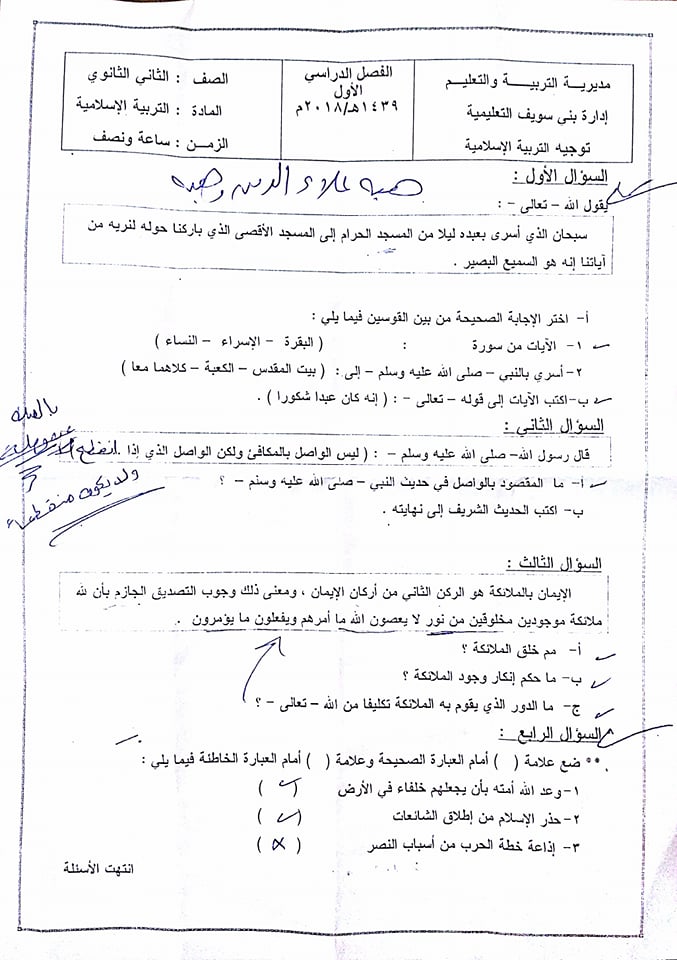 مديرية التربية والتعليم
إدارة بنى سويف التعليمية
توجيه التربية الإسلامية
الفصل الدراسي
الأول
١٤٣٩هـ/٢٠١٨م
الصف : الثاني الثانوي
المادة : التربية الإسلامية
الزمن : ساعة ونصف
السؤال الأول :
هبه علاء الدين وهبه
يقول الله – تعالى – :
سبحان الذي أسرى بعبده ليلا من المسجد الحرام إلى المسجد الأقصى الذي باركنا حوله لنريه من
آياتنا إنه هو السميع البصير .
أ- اختر الإجابة الصحيحة من بين القوسين فيما يلي :
١- الآيات من سورة : ( البقرة – الإسراء – النساء )
٢- أسري بالنبي – صلى الله عليه وسلم – إلى : ( بيت المقدس – الكعبة – كلاهما معا )
ب- اكتب الآيات إلى قوله – تعالى – : ( إنه كان عبدا شكورا ) .
السؤال الثاني :
قال رسول الله– صلى الله عليه وسلم – : ( ليس الواصل بالمكافئ ولكن الواصل الذي إذا .
أ- ما المقصود بالواصل في حديث النبي – صلى الله عليه وسلم – ؟
ب- اكتب الحديث الشريف إلى نهايته .
السؤال الثالث :
الإيمان بالملائكة هو الركن الثاني من أركان الإيمان ، ومعنى ذلك وجوب التصديق الجازم بأن لله
ملائكة موجودين مخلوقين من نور لا يعصون الله ما أمرهم ويفعلون ما يؤمرون .
أ- مم خلق الملائكة ؟
ب- ما حكم إنكار وجود الملائكة ؟
ج- ما الدور الذي يقوم به الملائكة تكليفا من الله – تعالى – ؟
السؤال الرابع :
** ضع علامة ( ) أمام العبارة الصحيحة وعلامة ( ) أمام العبارة الخاطئة فيما يلي :
١- وعد الله أمته بأن يجعلهم خلفاء في الأرض ( ✓ )
٢- حذر الإسلام من إطلاق الشائعات ( ✓ )
٣- إذاعة خطة الحرب من أسباب النصر ( x )
انتهت الأسئلة